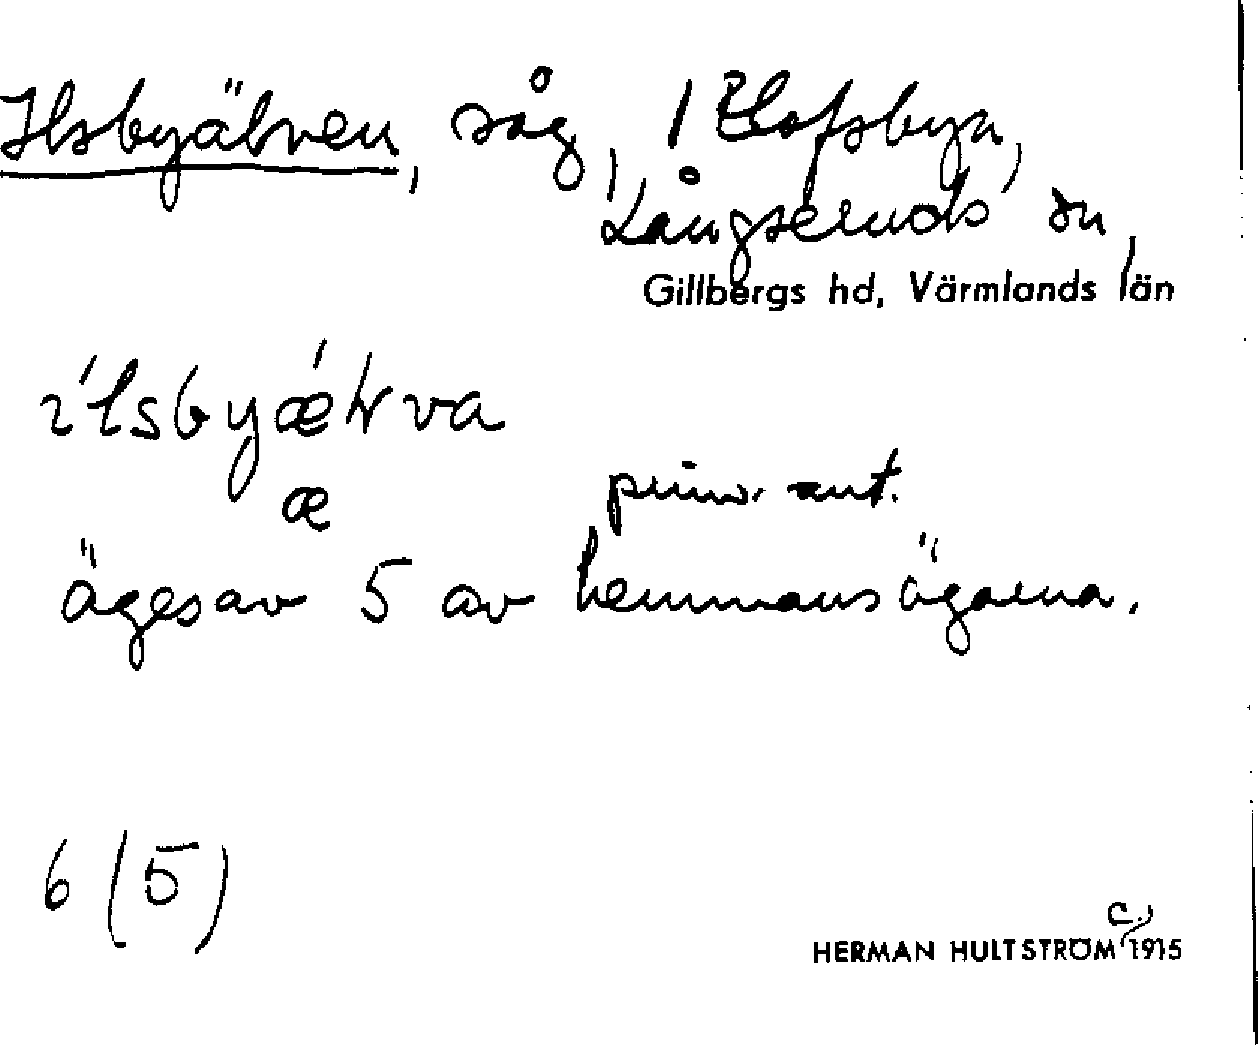 Ilsbyälven, såg, / Elofsbyn,
Långseruds sn,
Gillbergs hd, Värmlands län
ílsbyǽɫva
æ prim. ant.
äges av 5 av hemmansägarna.
6 (5)
c.
HERMAN HULTSTRÖM 1915